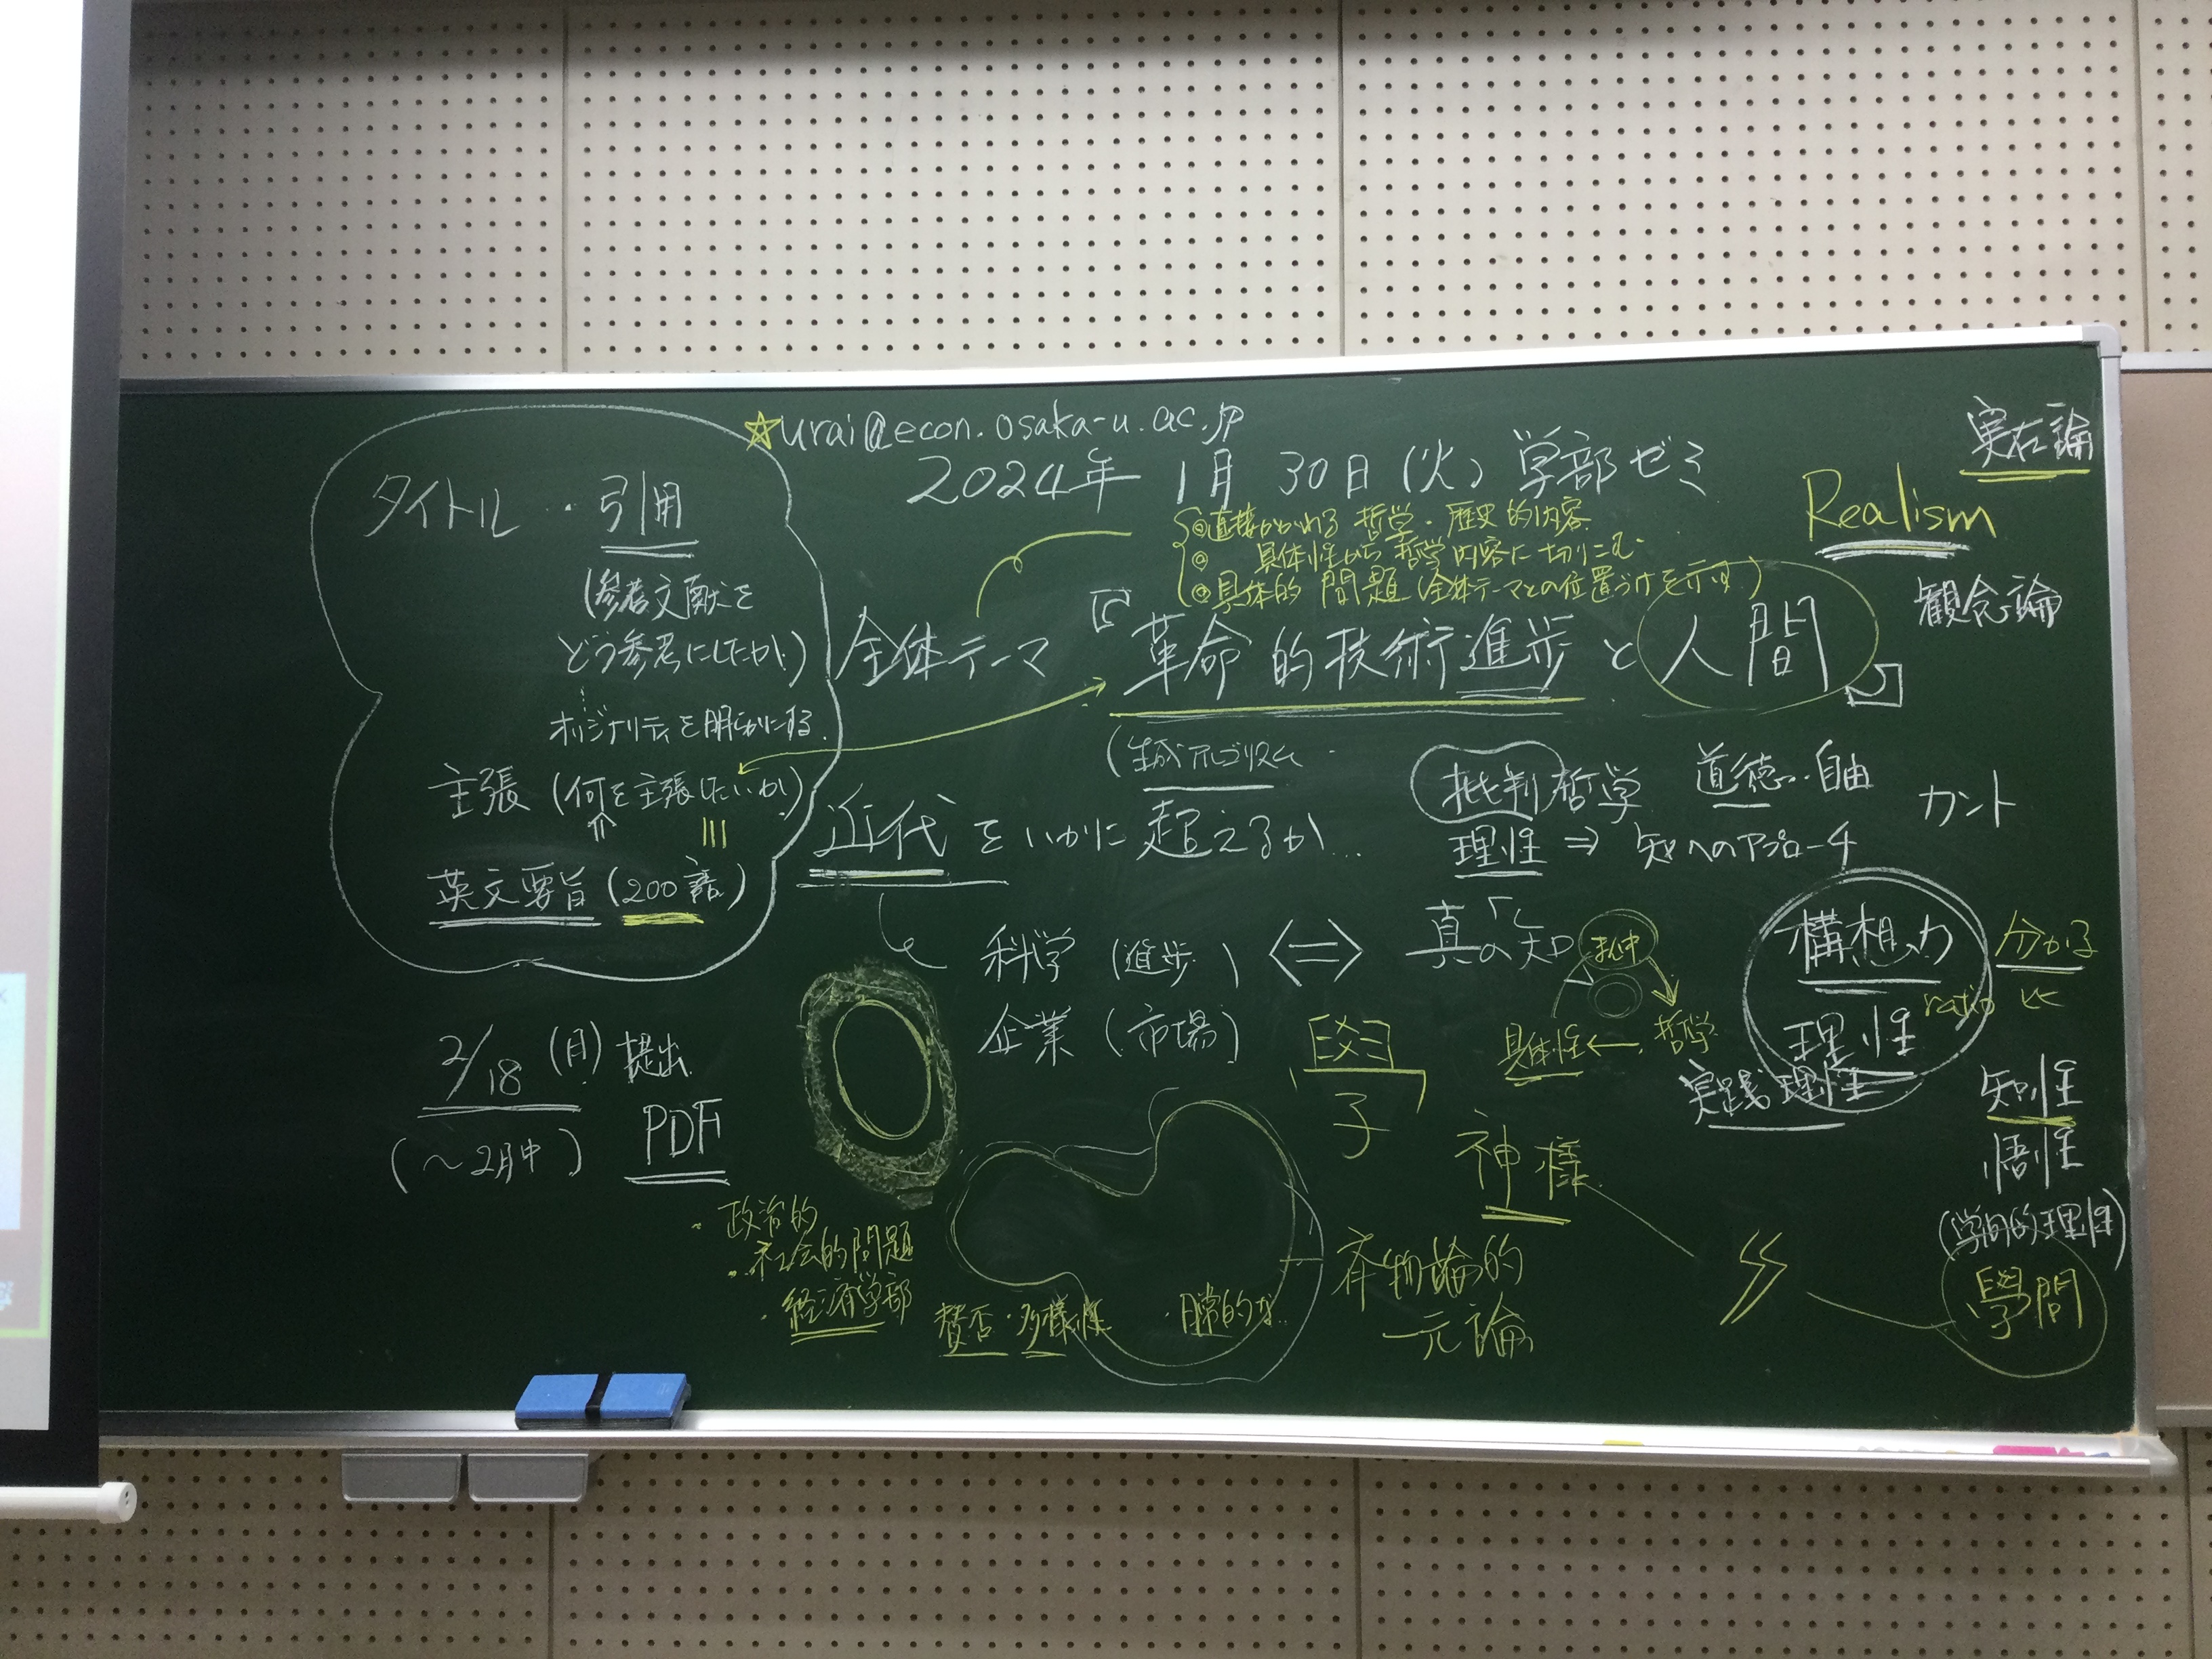 ☆urai@econ.osaka-u.ac.jp
2024年 1月 30日(火) 学部ゼミ
タイトル・引用
(参考文献を
どう参考にしたか)
オリジナリティを明らかにする.
主張 (何を主張したいか)
英文要旨 (200語)
2/18 (月) 提出
(〜2月中) PDF
◎直接かかれる 哲学・歴史的内容
◎ 具体性から哲学内容に切りこむ
◎具体的 問題 (全体テーマとの位置づけを示す)
全体テーマ 『革命的技術進歩と人間』
(生成アルゴリズム
近代をいかに超えるか...
科学 (進歩) ⇔ 真の「知
企業 (市場)
実在論
Realism
観念論
批判哲学 道徳・自由 カント
理性 ⇒ 知へのアプローチ
まん中
具体性 ← 哲学
構想力 分かる
理性 ratio 比
実践理性
知性
悟性
(学問的理性)
學問
學
神様
斉物論的
一元論
・政治的
・社会的問題
・経済学部
賛否・多様性 ・日常的な..